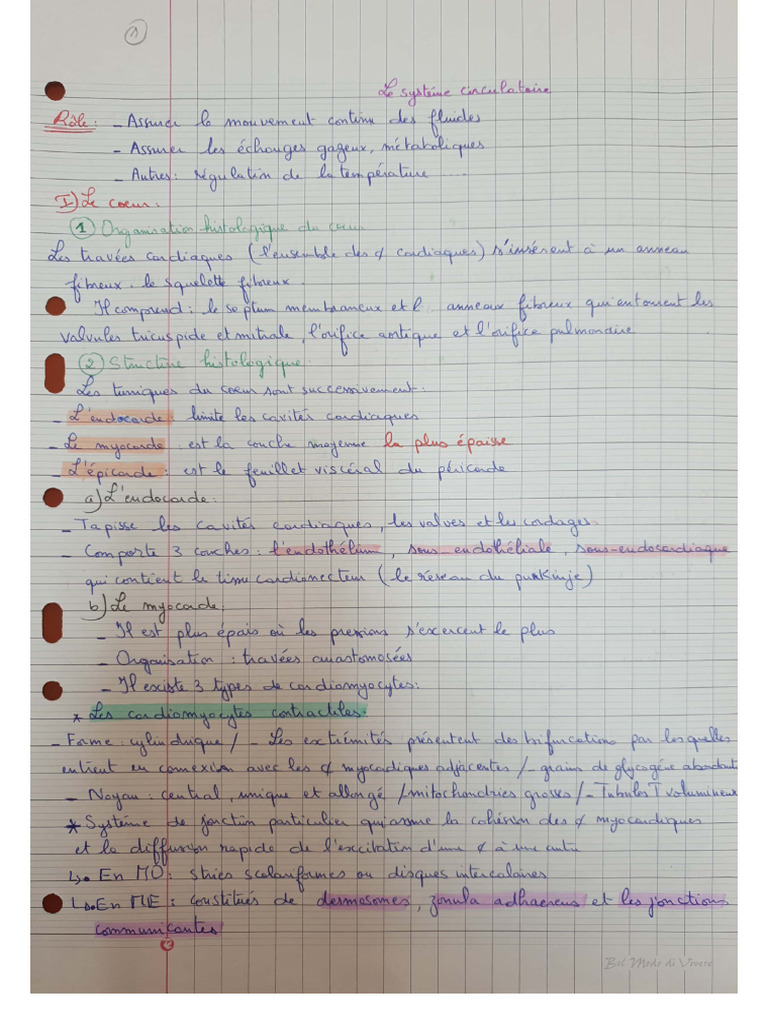 1
Le système circulatoire
Rôle : - Assurer le mouvement continu des fluides
- Assurer les échanges gazeux, métaboliques
- Autres : régulation de la température
I) Le coeur :
1 Organisation histologique du coeur
Les travées cardiaques (l'ensemble des ¢ cardiaques) s'insèrent à un anneau
fibreux. le squelette fibreux.
Il comprend : le septum membraneux et 4 anneaux fibreux qui entourent les
valvules tricuspide et mitrale, l'orifice aortique et l'orifice pulmonaire
2 Structure histologique.
Les tuniques du coeur sont successivement :
- L'endocarde : limite les cavités cardiaques
- Le myocarde : est la couche moyenne la plus épaisse
- L'épicarde : est le feuillet viscéral du péricarde
a) L'endocarde :
- Tapisse les cavités cardiaques, les valves et les cordages.
- Comporte 3 couches : l'endothélium, sous-endothéliale, sous-endocardiaque
qui contient le tissu cardionecteur (le réseau du purkinje)
b) Le myocarde :
- Il est plus épais où les pressions s'exercent le plus
- Organisation : travées anastomosées
- Il existe 3 types de cardiomyocytes :
* Les cardiomyocytes contractiles.
- Forme : cylindrique / - Les extrémités présentent des bifurcations par lesquelles
entrent en connexion avec les ¢ myocardiques adjacentes / - grains de glycogène abondant
- Noyau : central, unique et allongé / mitochondries grosses / - Tubules T volumineux
* Système de jonction particulier qui assure la cohésion des ¢ myocardiques
et la diffusion rapide de l'excitation d'une ¢ à une autre
↳. En MO : stries scalariformes ou disques intercalaires
↳. En ME : constitués de desmosomes, zonula adhaerens et les jonctions
communicantes
Bel Modo di Vivere